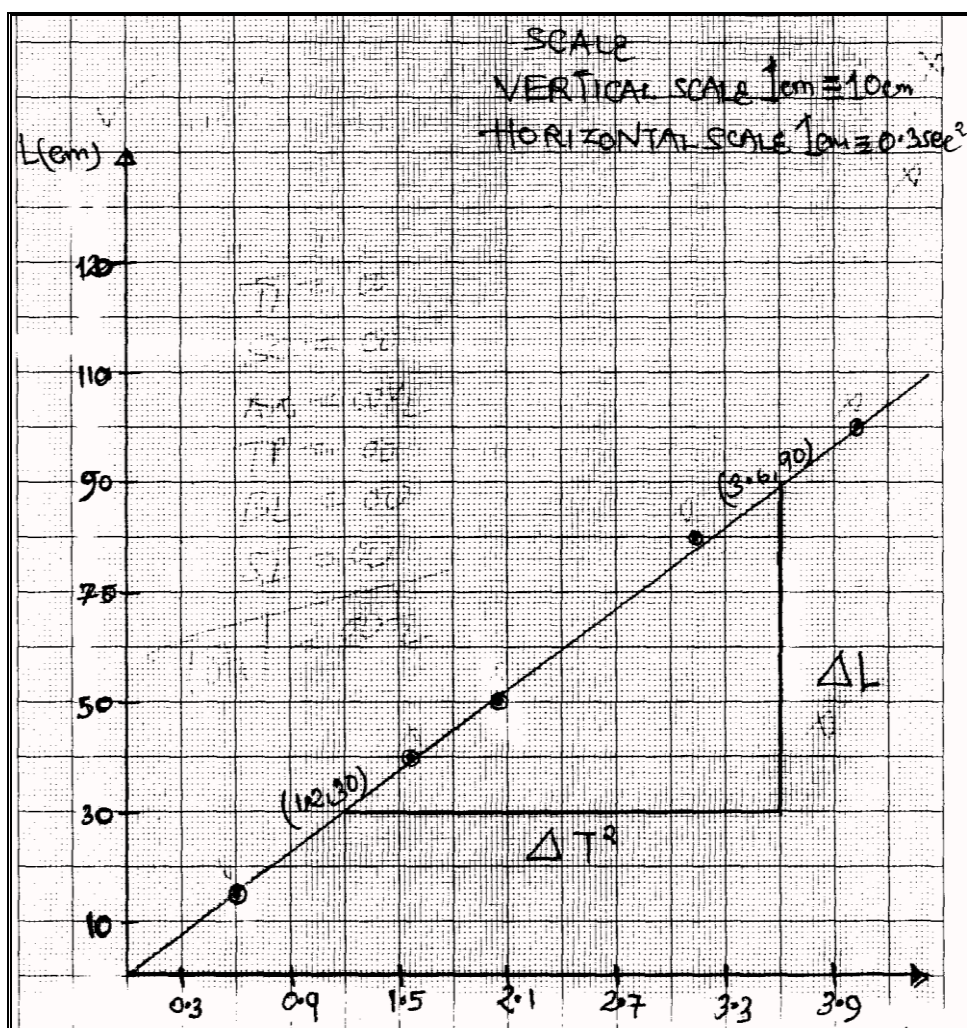 SCALE
VERTICAL SCALE 1cm ≡ 10cm
HORIZONTAL SCALE 1cm ≡ 0.3sec²
L(cm)
120
110
90
(3.6, 90)
70
ΔL
50
(1.2, 30)
30
ΔT²
10
0.3 0.9 1.5 2.1 2.7 3.3 3.9